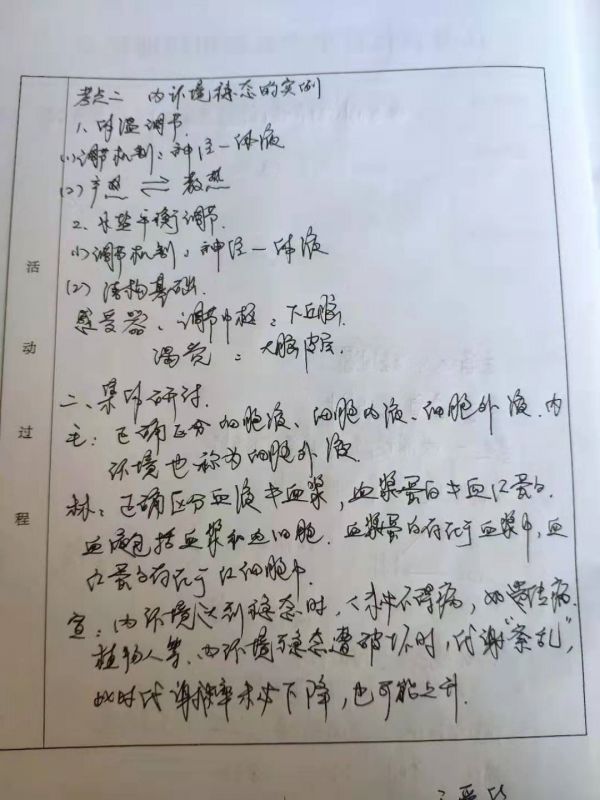 考点二 内环境稳态的实例
1、体温调节.
(1)调节机制：神经—体液
(2)产热 ⇌ 散热
2、水盐平衡调节.
(1)调节机制：神经—体液
(2)结构基础.
感受器、调节中枢：下丘脑.
渴觉：大脑皮层.
二、集体研讨.
毛：正确区分细胞液、细胞内液、细胞外液.内
环境也称为细胞外液.
林：正确区分血液与血浆，血浆蛋白与血红蛋白.
血液包括血浆和血细胞.血浆蛋白存在于血浆中,血
红蛋白存在于红细胞中.
宣：内环境达到稳态时，人未必不得病，如遗传病.
植物人等.内环境稳态遭破坏时，代谢"紊乱"，
此时代谢速率未必下降，也可能上升.
活动过程